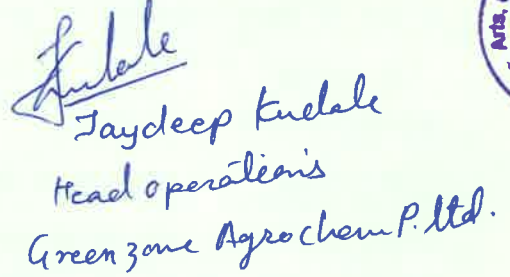 Kudale
Jaydeep Kudale
Head operations
Greenzone Agrochem P. Ltd.
Arts,